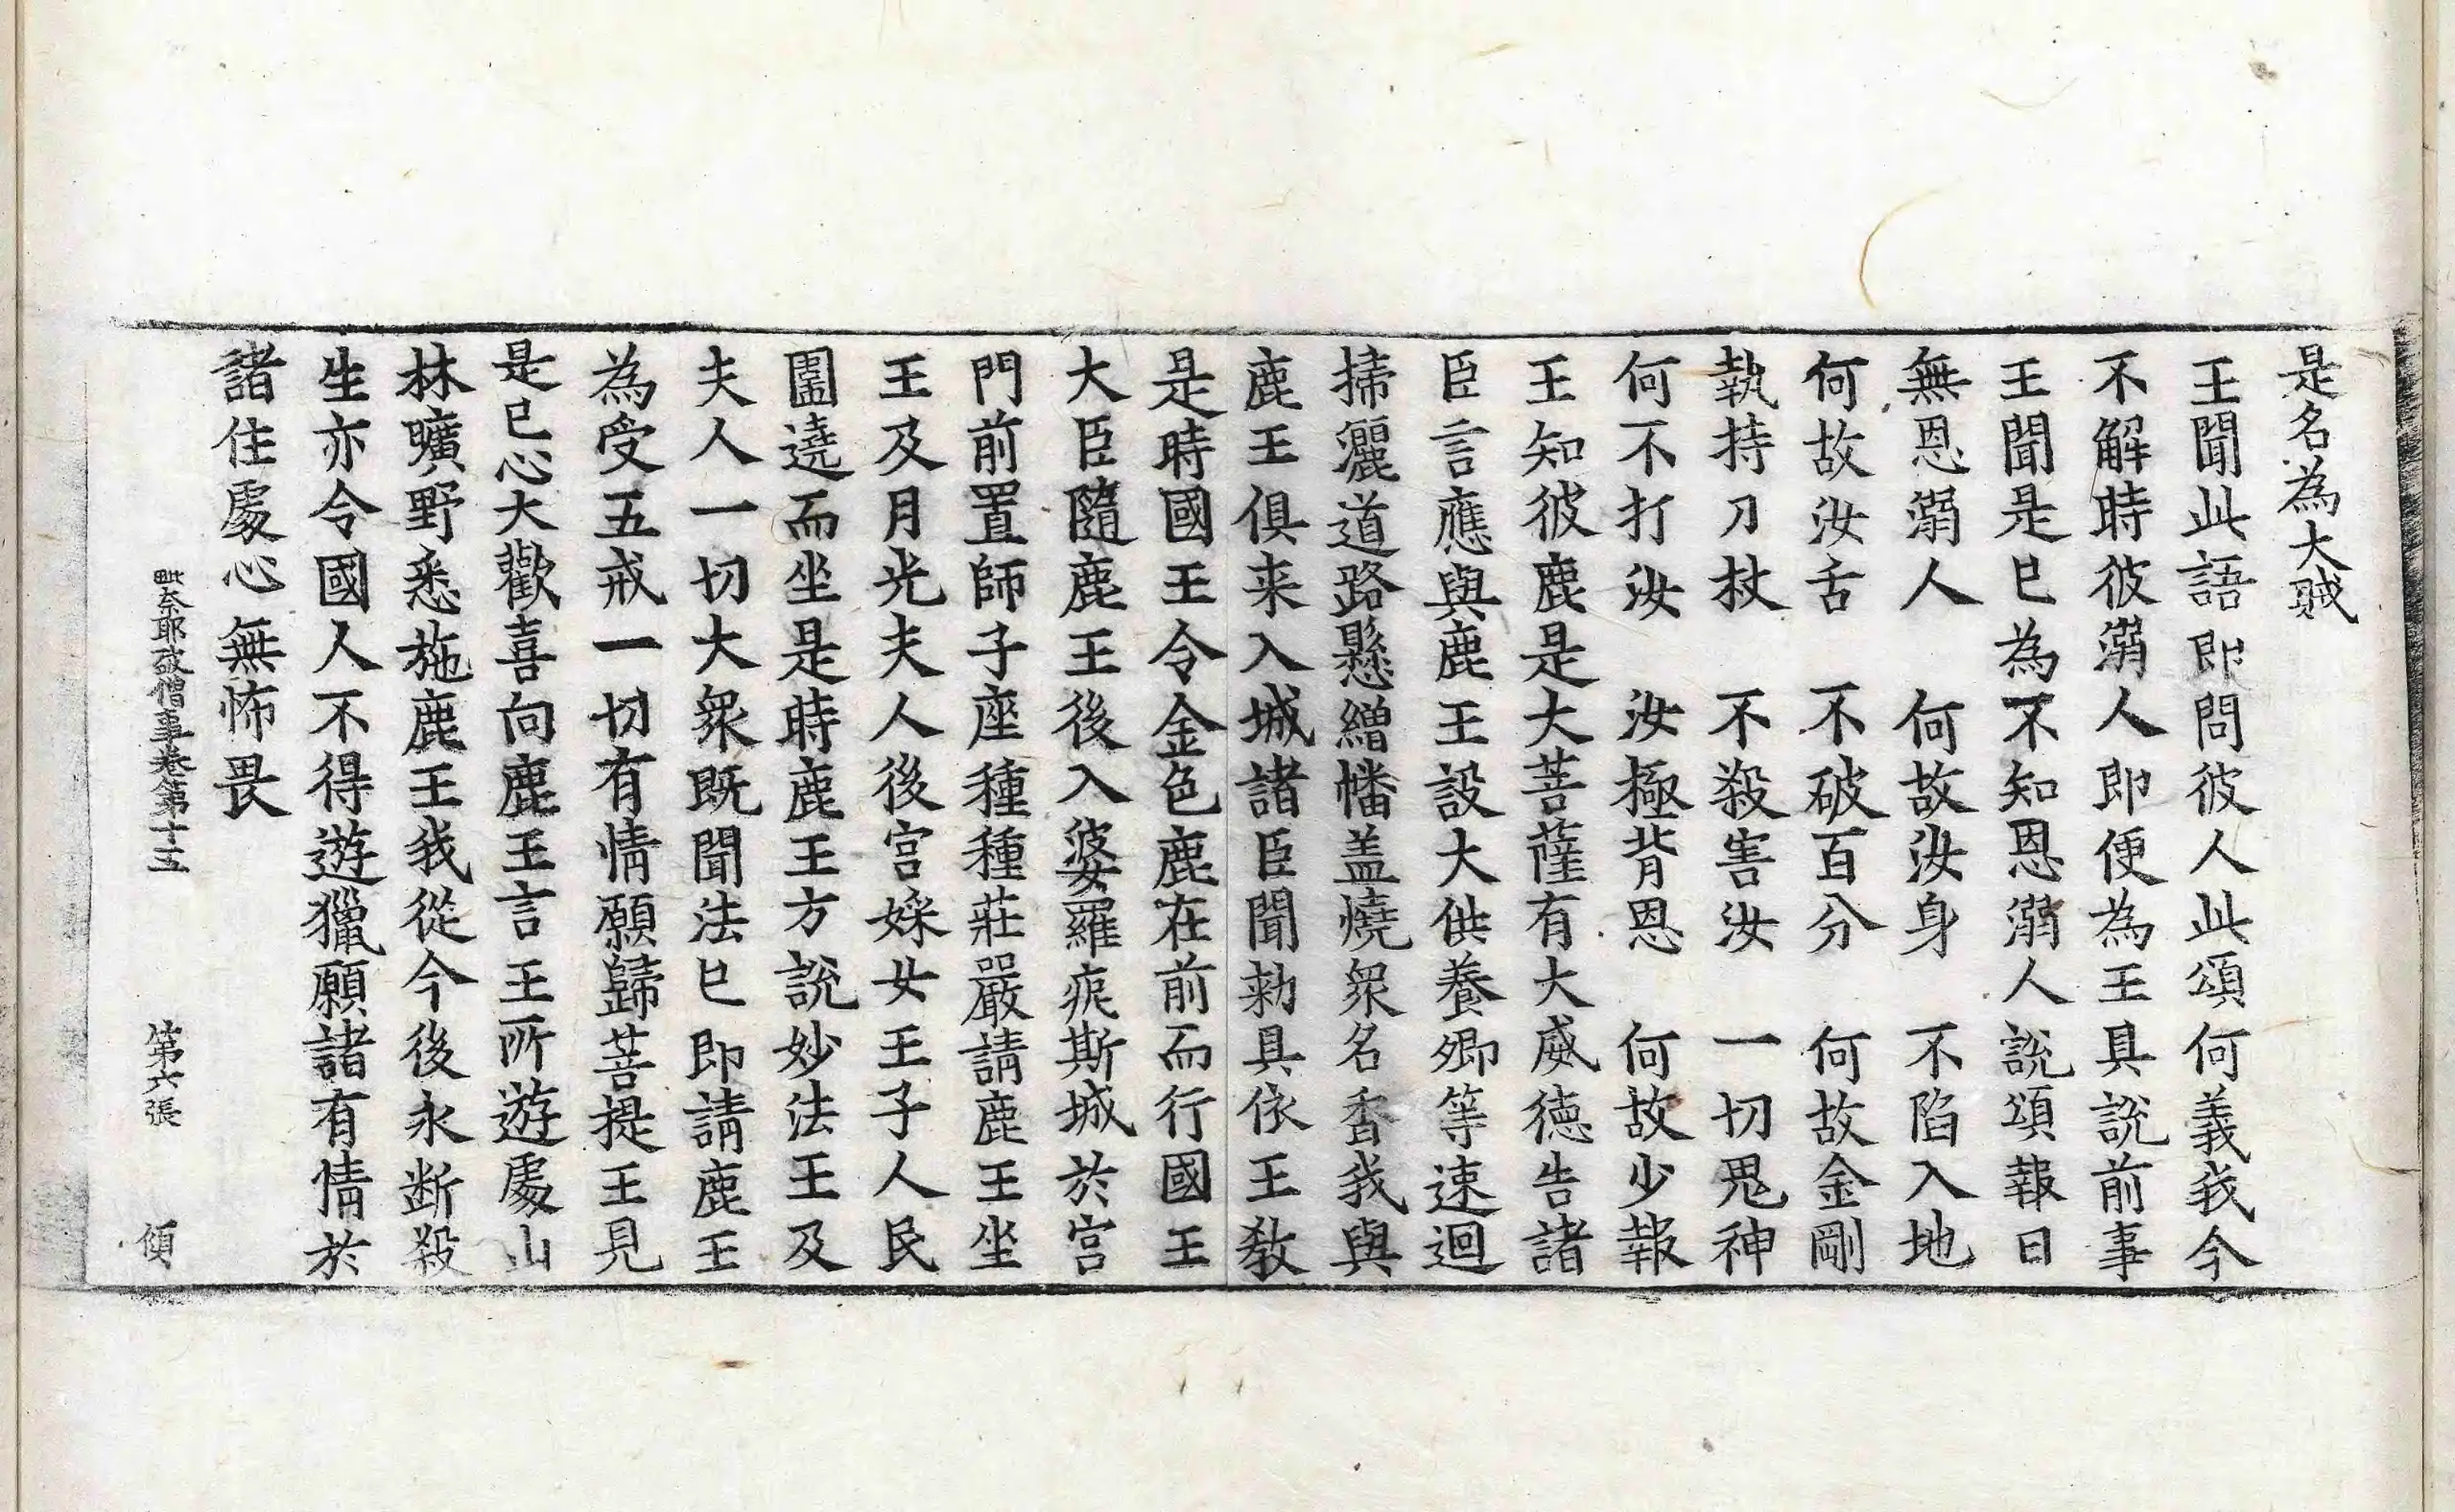 是名為大賊
王聞此語即問彼人此頌何義我今
不解時彼溺人即便為王具說前事
王聞是已為不知恩溺人說頌報曰
無恩溺人　何故汝身　不陷入地
何故汝舌　不破百分　何故金剛
執持刀杖　不殺害汝　一切鬼神
何不打汝　汝極背恩　何故少報
王知彼鹿是大菩薩有大威德告諸
臣言應與鹿王設大供養卿等速迴
掃灑道路懸繒幡盖燒衆名香我與
鹿王俱来入城諸臣聞勑具依王教
是時國王令金色鹿在前而行國王
大臣隨鹿王後入婆羅痆斯城於宮
門前置師子座種種莊嚴請鹿王坐
王及月光夫人後宮婇女王子人民
圍遶而坐是時鹿王方說妙法王及
夫人一切大衆既聞法已即請鹿王
為受五戒一切有情願歸菩提王見
是已心大歡喜向鹿王言王所遊處山
林曠野悉施鹿王我從今後永斷殺
生亦令國人不得遊獵願諸有情於
諸住處心無怖畏
毗奈耶破僧事卷第十五　第六張　傾